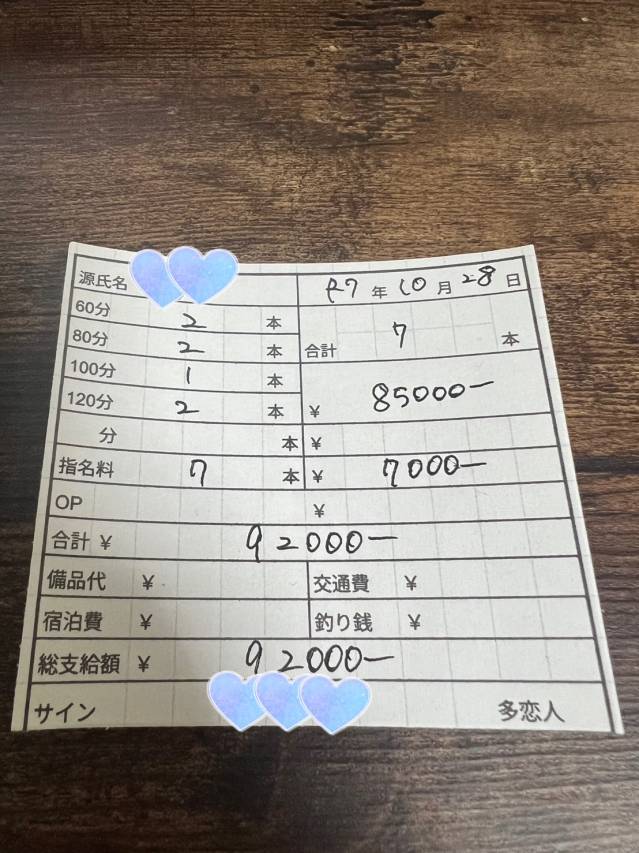 源氏名
R7年10月28日
60分 2 本
80分 2 本
合計 7 本
100分 1 本
120分 2 本
¥ 85000-
分 本 ¥
指名料 7 本 ¥ 7000-
OP ¥
合計 ¥ 92000-
備品代 ¥ 交通費 ¥
宿泊費 ¥ 釣り銭 ¥
総支給額 ¥ 92000-
サイン 多恋人